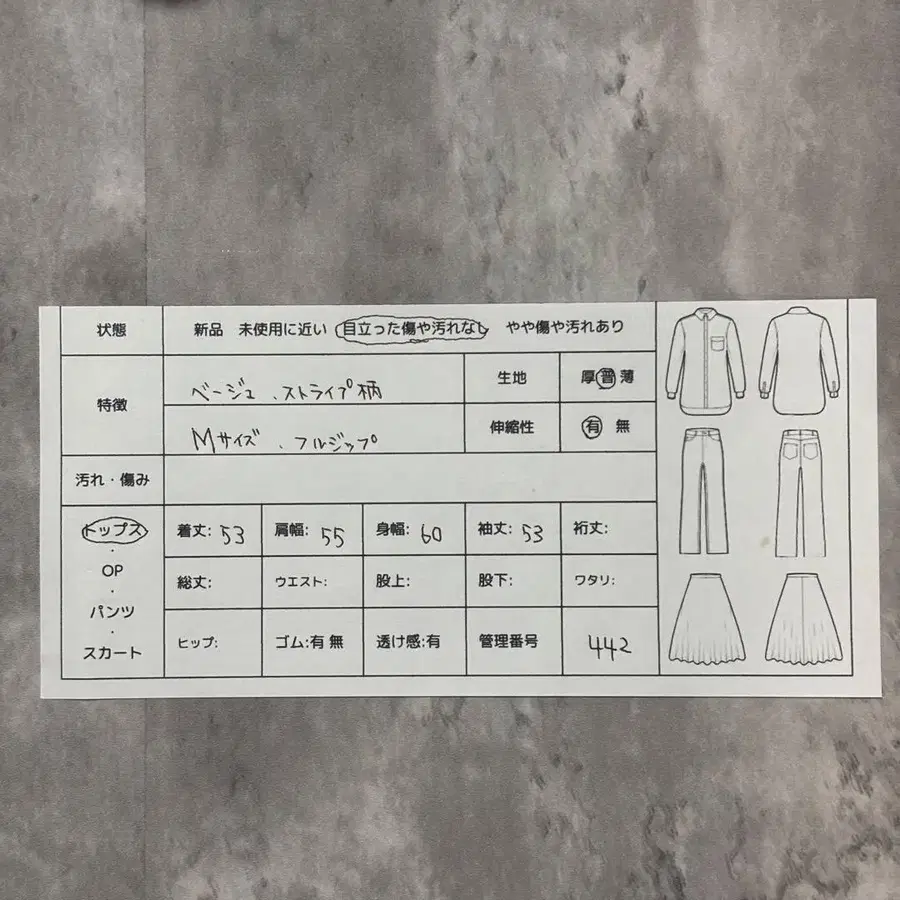 状態 新品 未使用に近い 目立った傷や汚れなし やや傷や汚れあり
特徴 ベージュ、ストライプ柄 生地 厚 普 薄
Mサイズ、フルジップ 伸縮性 有 無
汚れ・傷み
トップス 着丈: 53 肩幅: 55 身幅: 60 袖丈: 53 裄丈:
・
OP 総丈: ウエスト: 股上: 股下: ワタリ:
・
パンツ
・
スカート ヒップ: ゴム:有 無 透け感:有 管理番号 442